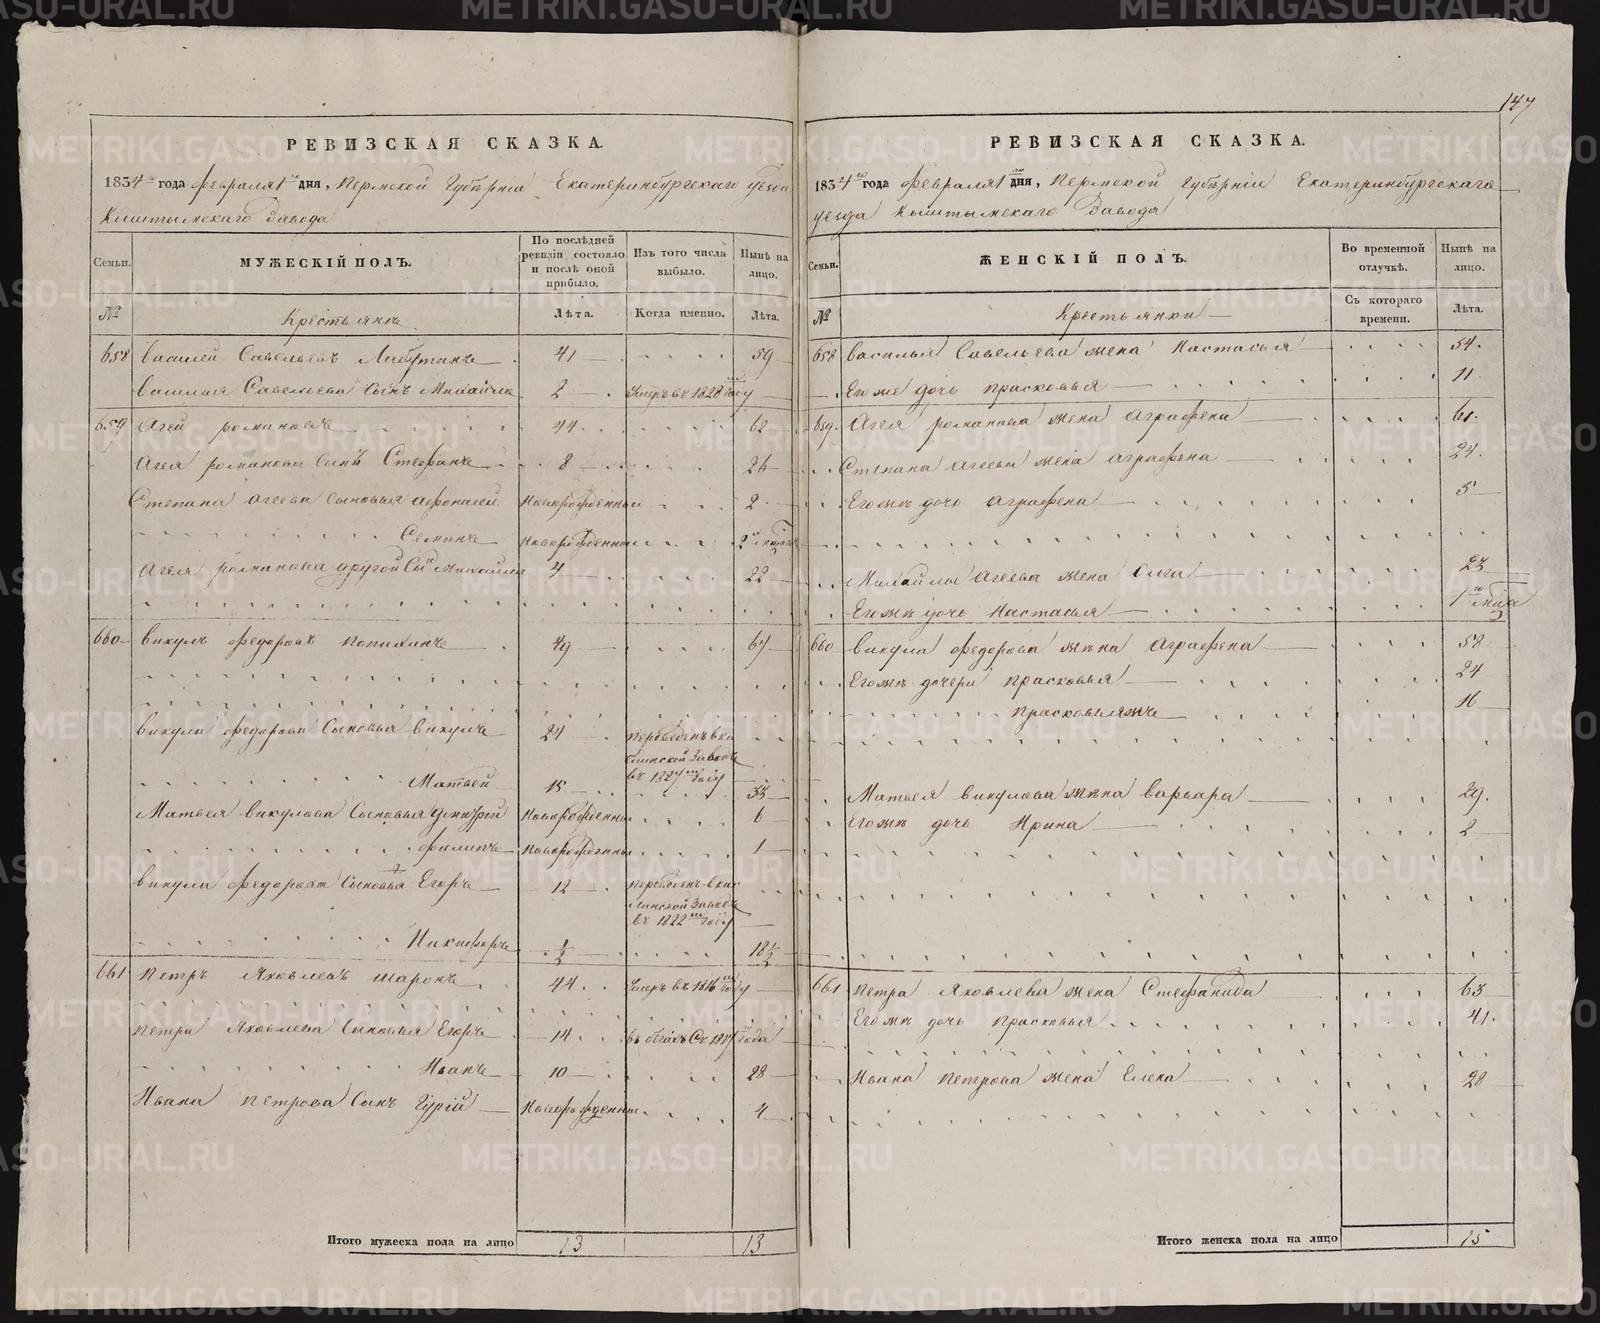 147
РЕВИЗСКАЯ СКАЗКА.
1834 го года февраля 1 го дня, Пермской Губерніи Екатеринбургскаго уезда
Кыштымскаго Завода
Семьи.
МУЖЕСКІЙ ПОЛЪ.
По послѣдней ревизіи состояло и послѣ оной прибыло.
Изъ того числа выбыло.
Нынѣ на лицо.
№
Крестьянъ
Лѣта.
Когда именно.
Лѣта.
658 Василей Савельевъ 41 59
Василья Савельева сынъ Михайла 2 Умеръ въ 1828 м году
659 Агей Романовъ 44 62
Агея Романова сынъ Стефанъ 8 26
Степана Агеева сыновья Афонасей Новорожденныи 2
Семенъ Новорожденныи
Агея Романова другой сынъ Михайла 4 22
660 Викулъ Федоровъ 49 67
Викула Федорова сыновья Викулъ 24 Переведенъ въ Каслинской Заводъ въ 1827 м году
Матвей 15 33
Матвея Викулова сыновья Дмитрей Новорожденны 6
Филипъ Новорожденны 1
Викула Федорова сыновья Егоръ 12 Переведенъ в Каслинской Заводъ въ 1822 м году
Никифоръ 1/2 18 1/2
661 Петръ Яковлевъ Шаронъ 44 Умеръ въ 1816 м году
Петра Яковлева сыновья Егоръ 14 въ бѣгахъ съ года
Иванъ 10 28
Ивана Петрова сынъ Гурій Новорожденны 4
Итого мужеска пола на лицо 13 13
РЕВИЗСКАЯ СКАЗКА.
1834 го года февраля 1 го дня, Пермской Губерніи Екатеринбургскаго
уезда Кыштымскаго Завода
Семьи.
ЖЕНСКІЙ ПОЛЪ.
Во временной отлучкѣ.
Нынѣ на лицо.
№
Крестьянки
Съ котораго времени.
Лѣта.
658 Василья Савельева жена Настасья 54.
Егоже дочь Прасковья 11
659. Агея Романова жена Аграфена 61.
Степана Агеева жена Аграфена 24.
Егожъ дочь Аграфена 5
Михайлы Агеева жена Олга 23
Егожъ дочь Настасья
660 Викула Федорова жена Аграфена 58
Егожъ дочери Прасковья 24
Прасковьяжъ 16
Матвея Викулова жена Варвара 29.
Егожъ дочь Ирина 2
661 Петра Яковлева жена Стефанида 63
Егожъ дочь Прасковья 41.
Ивана Петрова жена Елена 28
Итого женска пола на лицо 15
METRIKI.GASO-URAL.RU